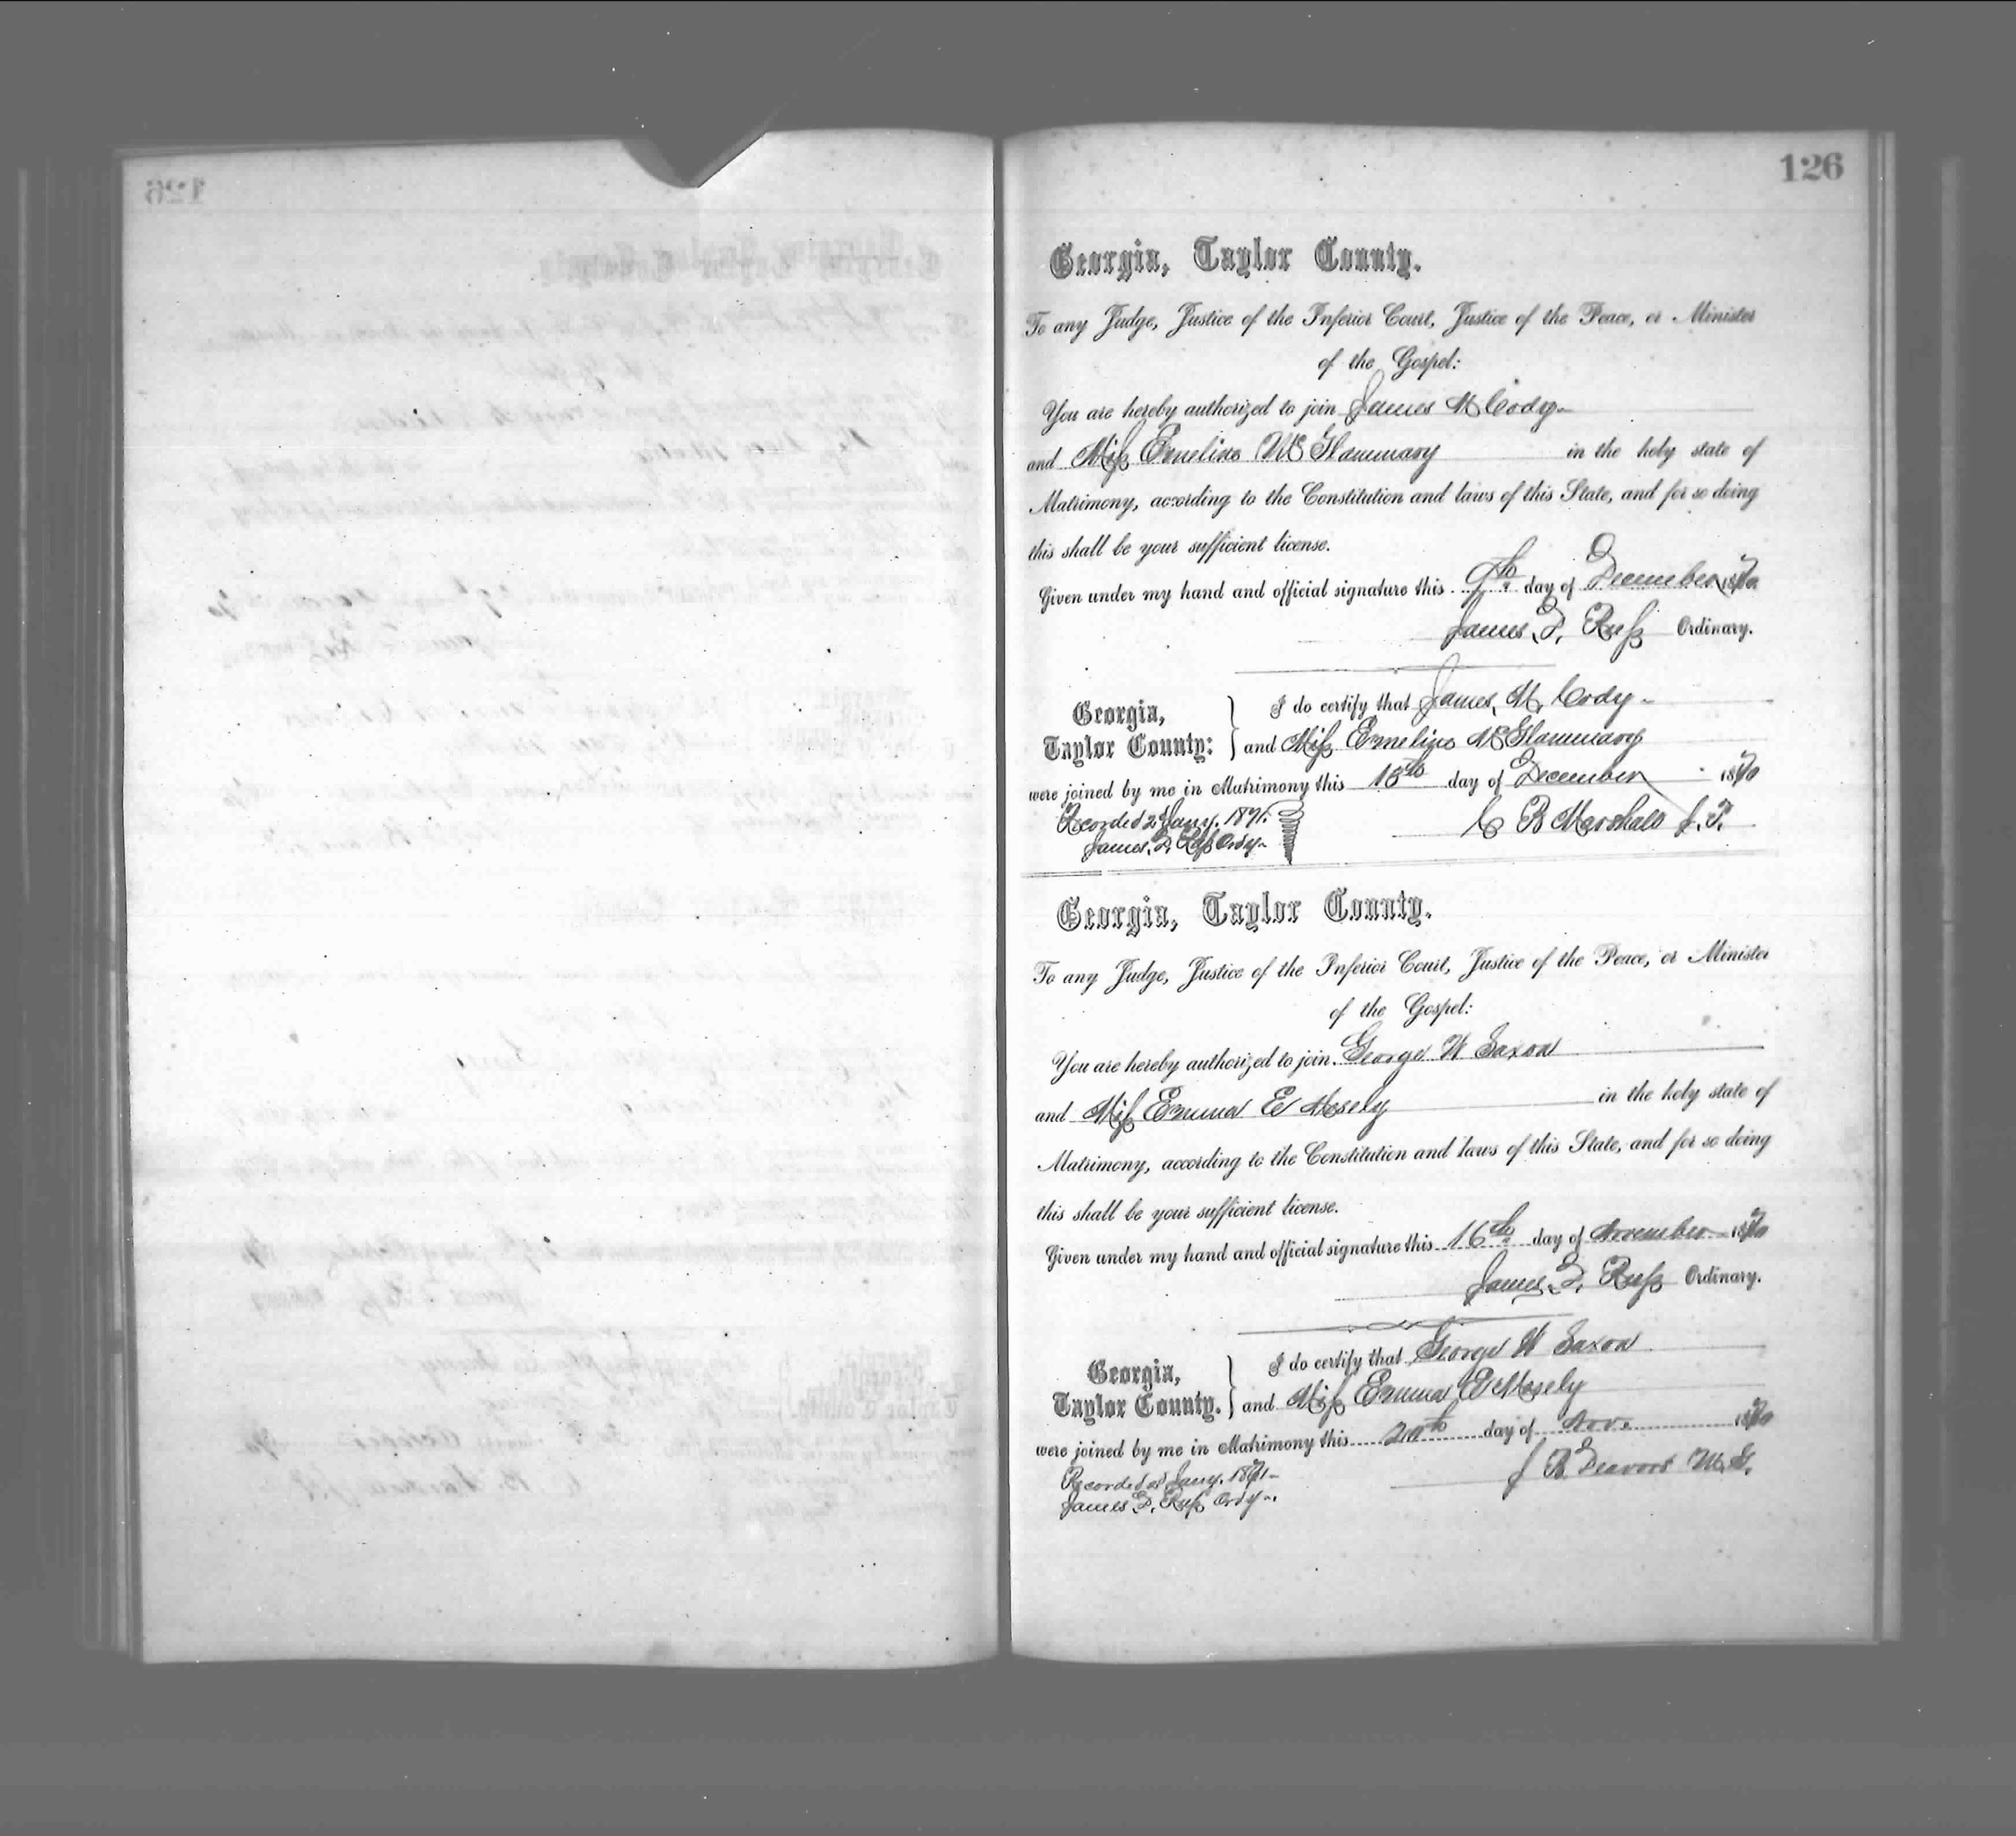 126
Georgia, Taylor County.
To any Judge, Justice of the Inferior Court, Justice of the Peace, or Minister
of the Gospel:
You are hereby authorized to join James M Cody
and Miss Emeline McGlammary in the holy state of
Matrimony, according to the Constitution and laws of this State, and for so doing
this shall be your sufficient license.
Given under my hand and official signature this 9th day of December 1870
James D. Russ Ordinary.
Georgia,
Taylor County:
I do certify that James M. Cody
and Miss Emeline McGlammary
were joined by me in Matrimony this 18th day of December 1870
Recorded 2 Jany. 1871.
James D. Russ Ordy
C B Marshall J. P.
Georgia, Taylor County.
To any Judge, Justice of the Inferior Court, Justice of the Peace, or Minister
of the Gospel:
You are hereby authorized to join George W Saxon
and Miss Emma E Mosely in the holy state of
Matrimony, according to the Constitution and laws of this State, and for so doing
this shall be your sufficient license.
Given under my hand and official signature this 16th day of November 1870
James D. Russ Ordinary.
Georgia,
Taylor County.
I do certify that George W Saxon
and Miss Emma E Mosely
were joined by me in Matrimony this 20th day of Nov. 1870
Recorded 2 Jany. 1871
James D. Russ Ordy.
J B Deavors M. G.